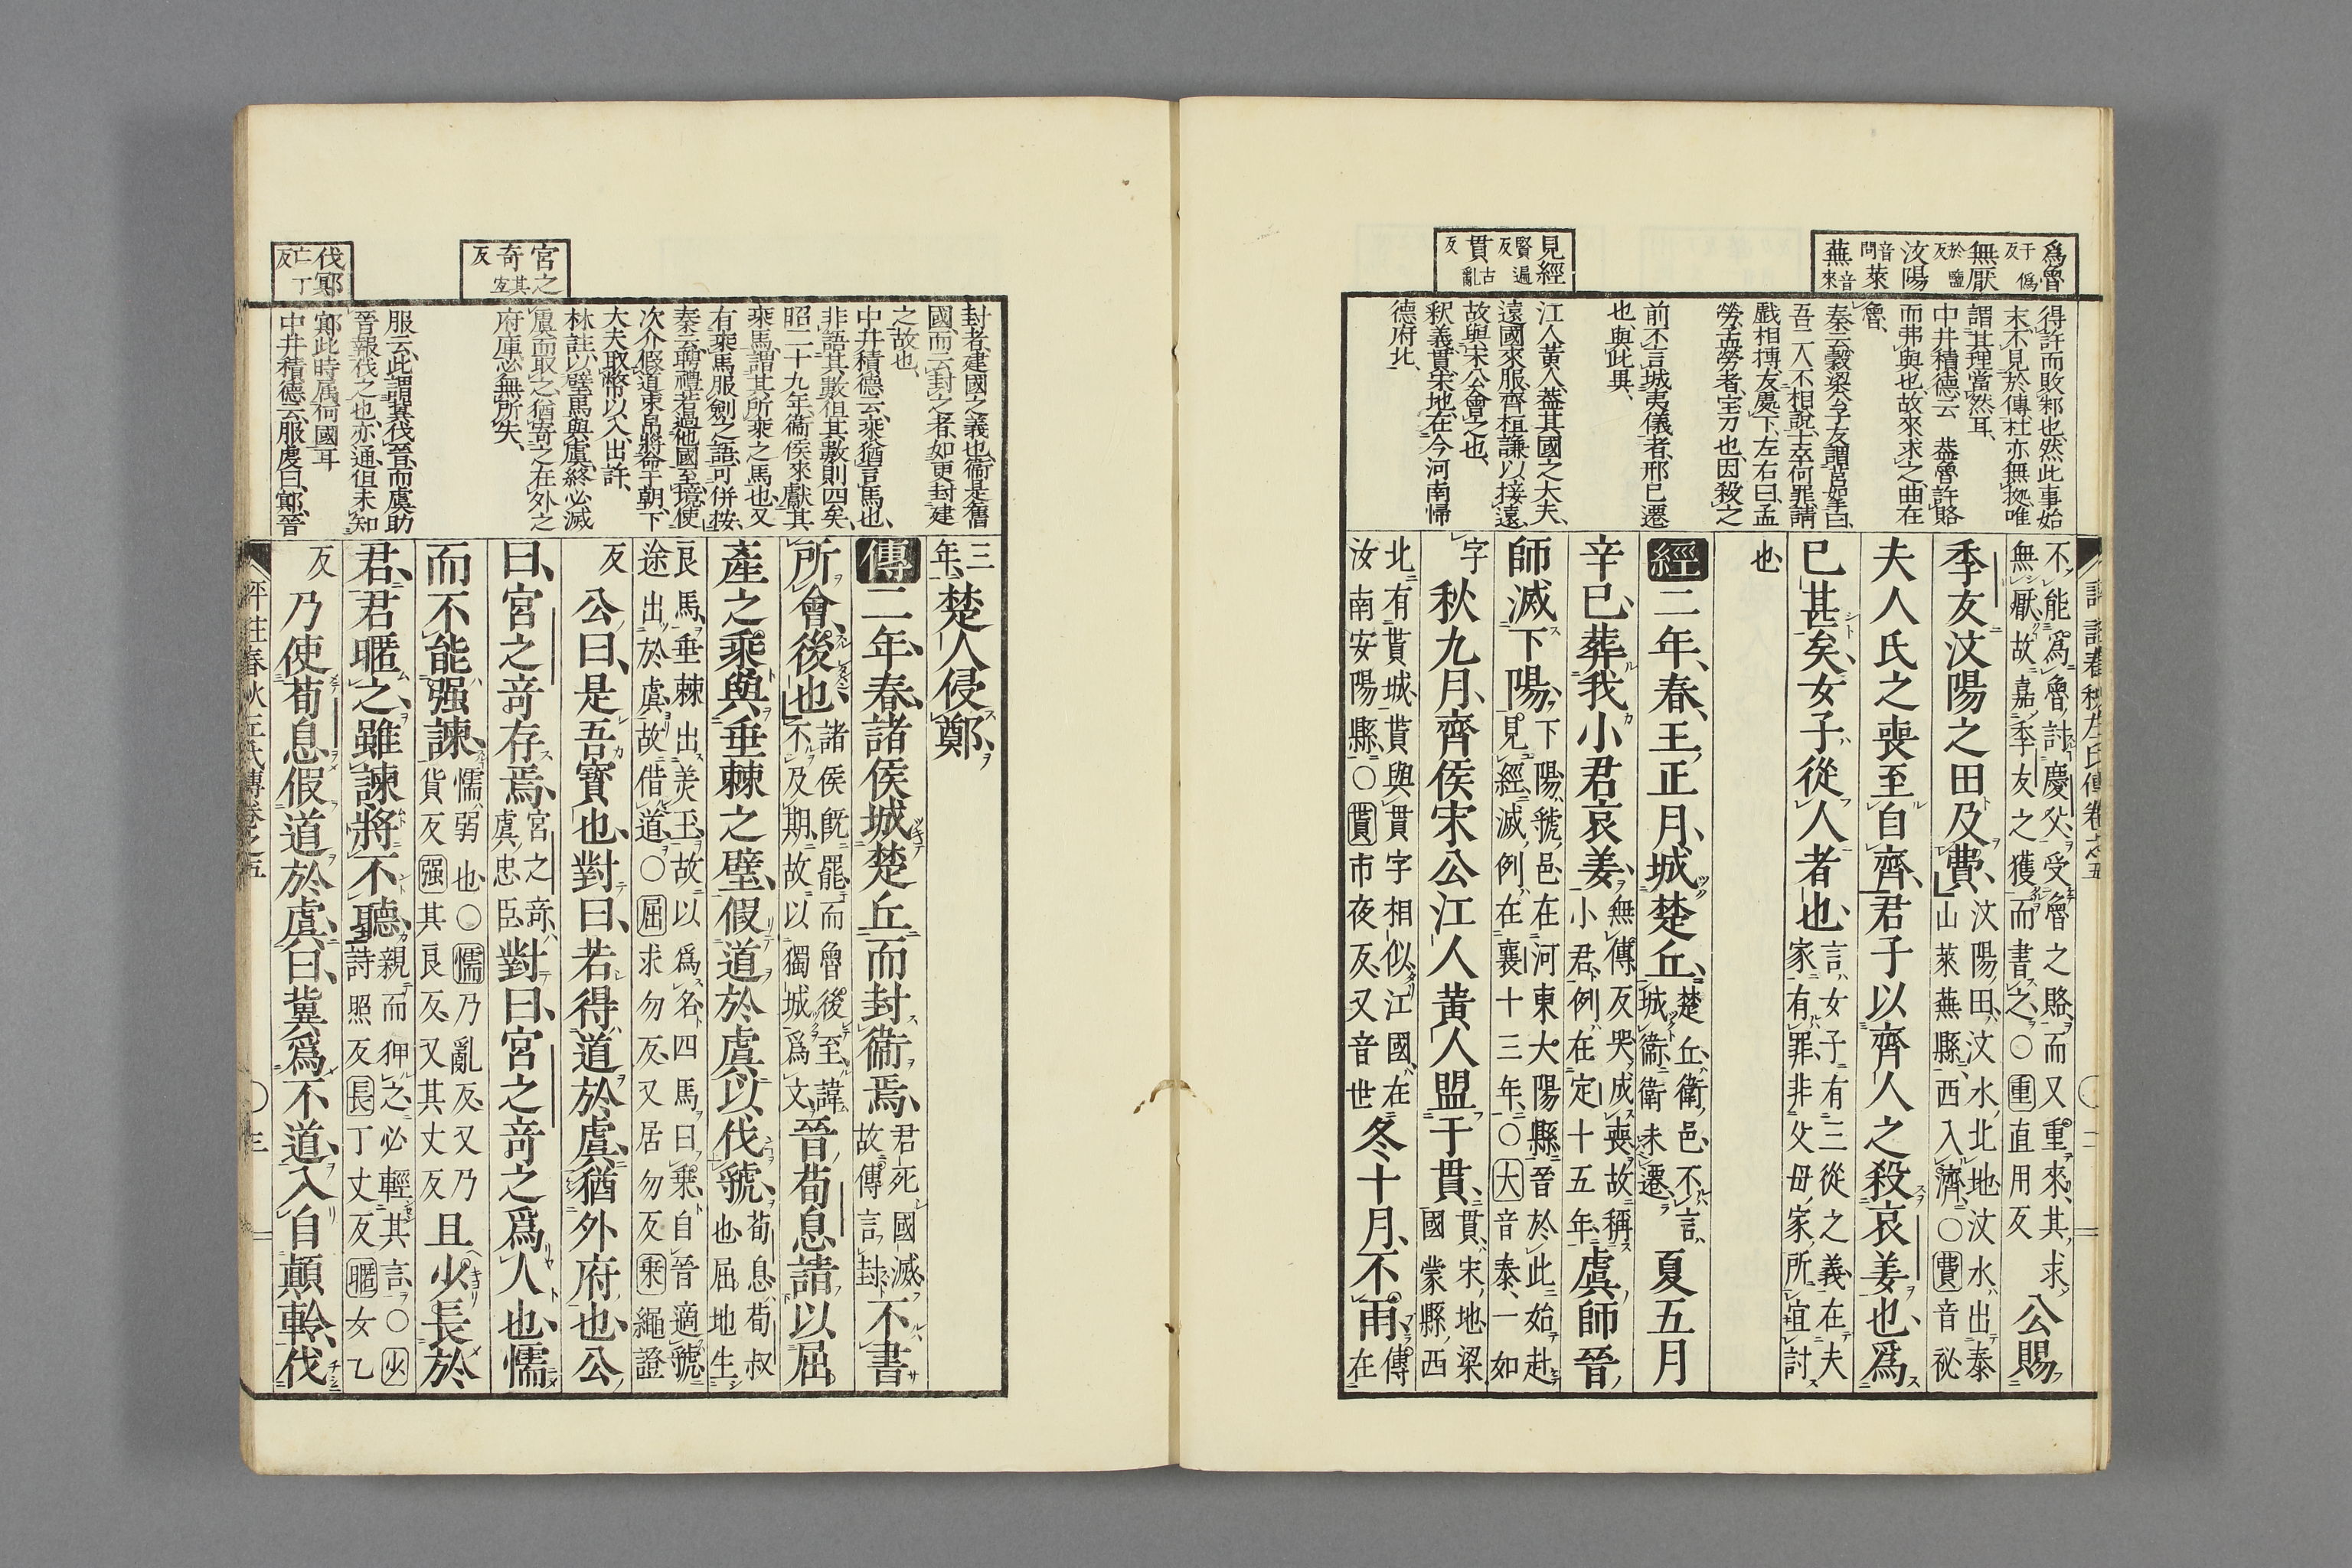 爲魯
于僞反
無厭
於鹽反
汶陽
音問
萊蕪
音來
見經
賢遍反
貫
古亂反
得許而敗邾也然此事始
末不見於傳杜亦無據唯
謂其理當然耳、
中井積德云 蓋魯許賂
而弗與也、故來求之、曲在
魯、
秦云、穀梁、公子友謂莒挐曰、
吾二人不相說、士卒何罪、請
戲相搏、友處下、左右曰、孟
勞、孟勞者、宝刀也、因殺之
前不言城夷儀者、邢已遷
也、與此異、
江人黃人、蓋其國之大夫、
遠國來服、齊桓謙以接遠、
故與宋公會之也、
釈義、貫、宋地、在今河南帰
德府北、
不能爲魯討慶父、受魯之賂、而又重來、其求
無厭、故嘉季友之獲而書之、〇重直用反
公賜
季友汶陽之田及費、
汶陽田、汶水北地、汶水出泰
山萊蕪縣西入濟、〇費音祕
夫人氏之喪至自齊、君子以齊人之殺哀姜也、爲
已甚矣、女子從人者也、
言女子有三從之義、在夫
家有罪、非父母家所宜討
也
經二年、春、王正月、城楚丘、
楚丘、衛邑、不言
城衛衛未遷、
夏五月
辛巳、葬我小君哀姜、
無傳、反哭成喪、故稱
小君、例在定十五年、
虞師晉
師滅下陽、
下陽、虢邑、在河東大陽縣、晉於此始赴
見經、滅例在襄十三年、〇大音泰、一如
字
秋九月、齊侯宋公江人黃人盟于貫、
貫、宋地、梁
國蒙縣西
北有貰城、貰與貫字相似、江國、在
汝南安陽縣、〇貰市夜反、又音世
冬十月、不雨、
傳
在
評註春秋左氏傳卷之五
二
宮之
奇
其宐反
伐鄍
亡丁反
封者、建國之義也、衞是舊
國、而云封之者、如更封建
之故也、
中井積德云、乘猶言馬也、
非語其數、但其數則四矣、
昭二十九年、衞侯來獻其
乘馬、謂其所乘之馬也、又
有乘馬服劍之語、可併按、
秦云、聘禮、若過他國至境、使
次介假道、束帛將命于朝、下
大夫取幣以入、出許、
林註、以璧馬與虞、終必滅
虞而取之、猶寄之在外之
府庫、必無所失、
服云、此謂冀伐晉、而虞助
晉報伐之也、亦通、但未知
鄍此時属何國耳
中井積德云、服虔曰、鄍、晉
三
年、
楚人侵鄭、
傳二年、春、諸侯城楚丘而封衞焉、
君死國滅、
故傳言封
不書
所會、後也、
諸侯既罷、而魯後至、諱
不及期、故以獨城爲文、
晉荀息請以屈
產之乘、與垂棘之璧、假道於虞以伐虢、
荀息、荀叔
也、屈地生
良馬、垂棘出美玉、故以爲名、四馬曰乘、自晉適虢、
途出於虞、故借道、〇屈求勿反、又居勿反、乘繩證
反
公曰、是吾寶也、對曰、若得道於虞、猶外府也、公
曰、宮之奇存焉、
宮之奇、
虞忠臣
對曰、宮之奇之爲人也、懦
而不能强諫、
懦、弱也、〇懦乃亂反、又乃
貨反、强其良反、又其丈反
且少長於
君、君暱之、雖諫將不聽、
親而狎之、必輕其言、〇少
詩照反、長丁丈反、暱女乙
反
乃使荀息假道於虞、曰、冀爲不道、入自顚軨、伐
評註春秋左氏傳卷之五
三